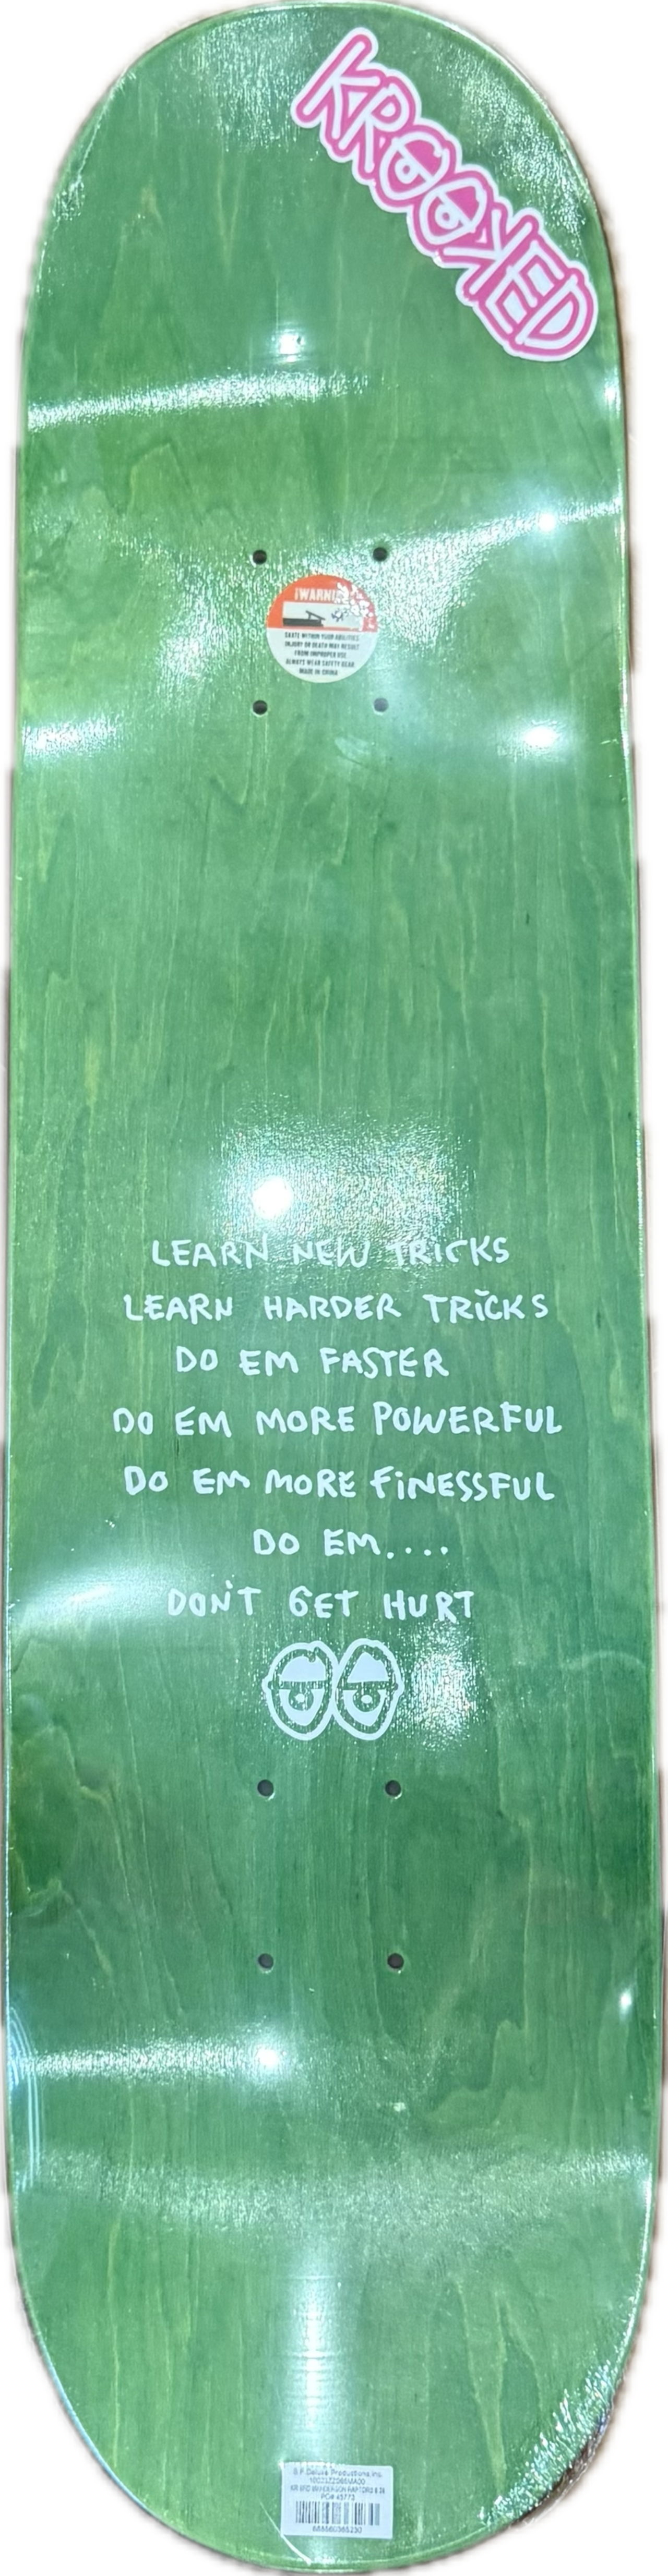 KROOKED
¡WARNI
SKATE WITHIN YOUR ABILITIES
INJURY OR DEATH MAY RESULT
FROM IMPROPER USE
ALWAYS WEAR SAFETY GEAR
MADE IN CHINA
LEARN NEW TRICKS
LEARN HARDER TRICKS
DO EM FASTER
DO EM MORE POWERFUL
DO EM MORE FINESSFUL
DO EM....
DON'T GET HURT
S.F. Deluxe Productions, Inc.
PO# 45773